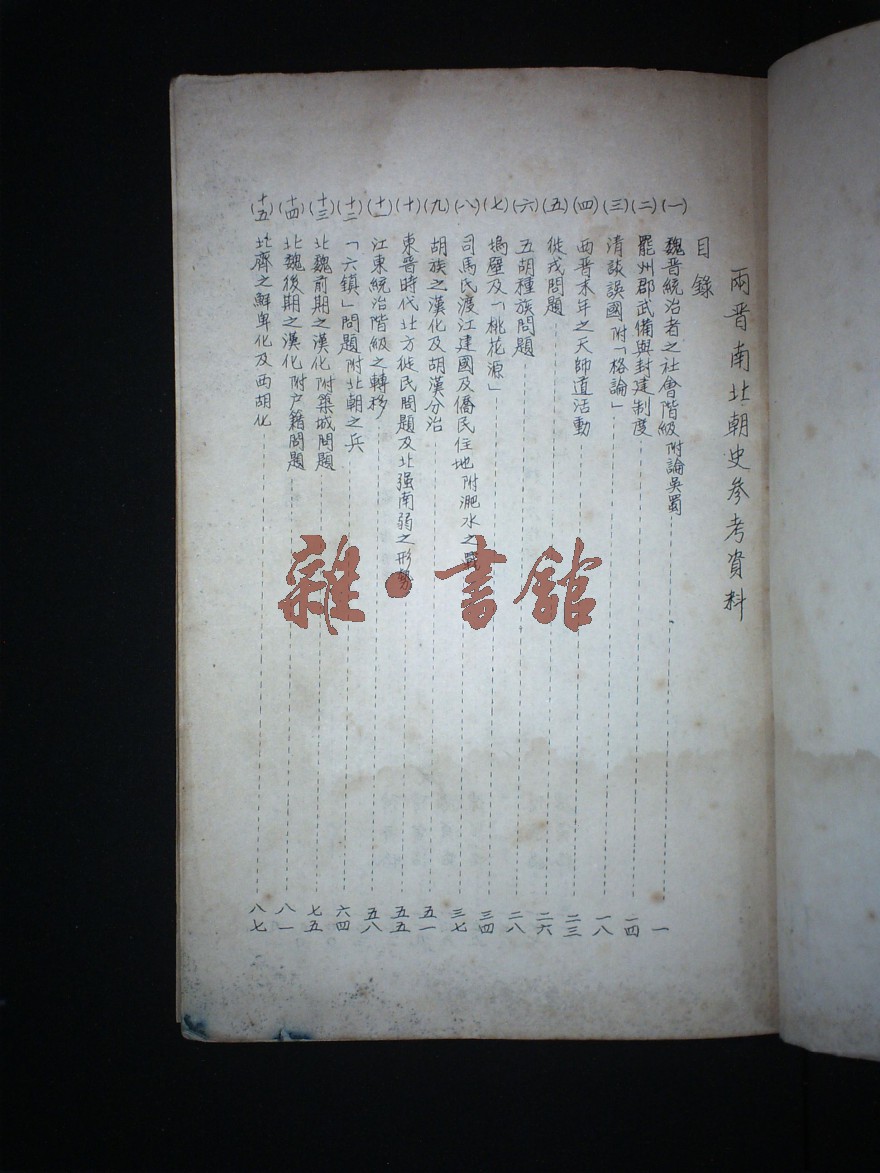 兩晋南北朝史參考資料
目錄
(一) 魏晋統治者之社會階級 附論吳蜀 一
(二) 罷州郡武備與封建制度 一四
(三) 清談誤國 附「格論」 一八
(四) 西晋末年之天師道活動 二三
(五) 徙戎問題 二六
(六) 五胡種族問題 二八
(七) 塢壁及「桃花源」 三四
(八) 司馬氏渡江建國及僑民住地 附淝水之戰 三七
(九) 胡族之漢化及胡漢分治 五一
(十) 東晋時代北方徙民問題及北强南弱之形勢 五五
(十一) 江東統治階級之轉移 五八
(十二) 「六鎮」問題 附北朝之兵 六四
(十三) 北魏前期之漢化 附築城問題 七五
(十四) 北魏後期之漢化 附户籍問題 八一
(十五) 北齊之鮮卑化及西胡化 八七
雜·書館